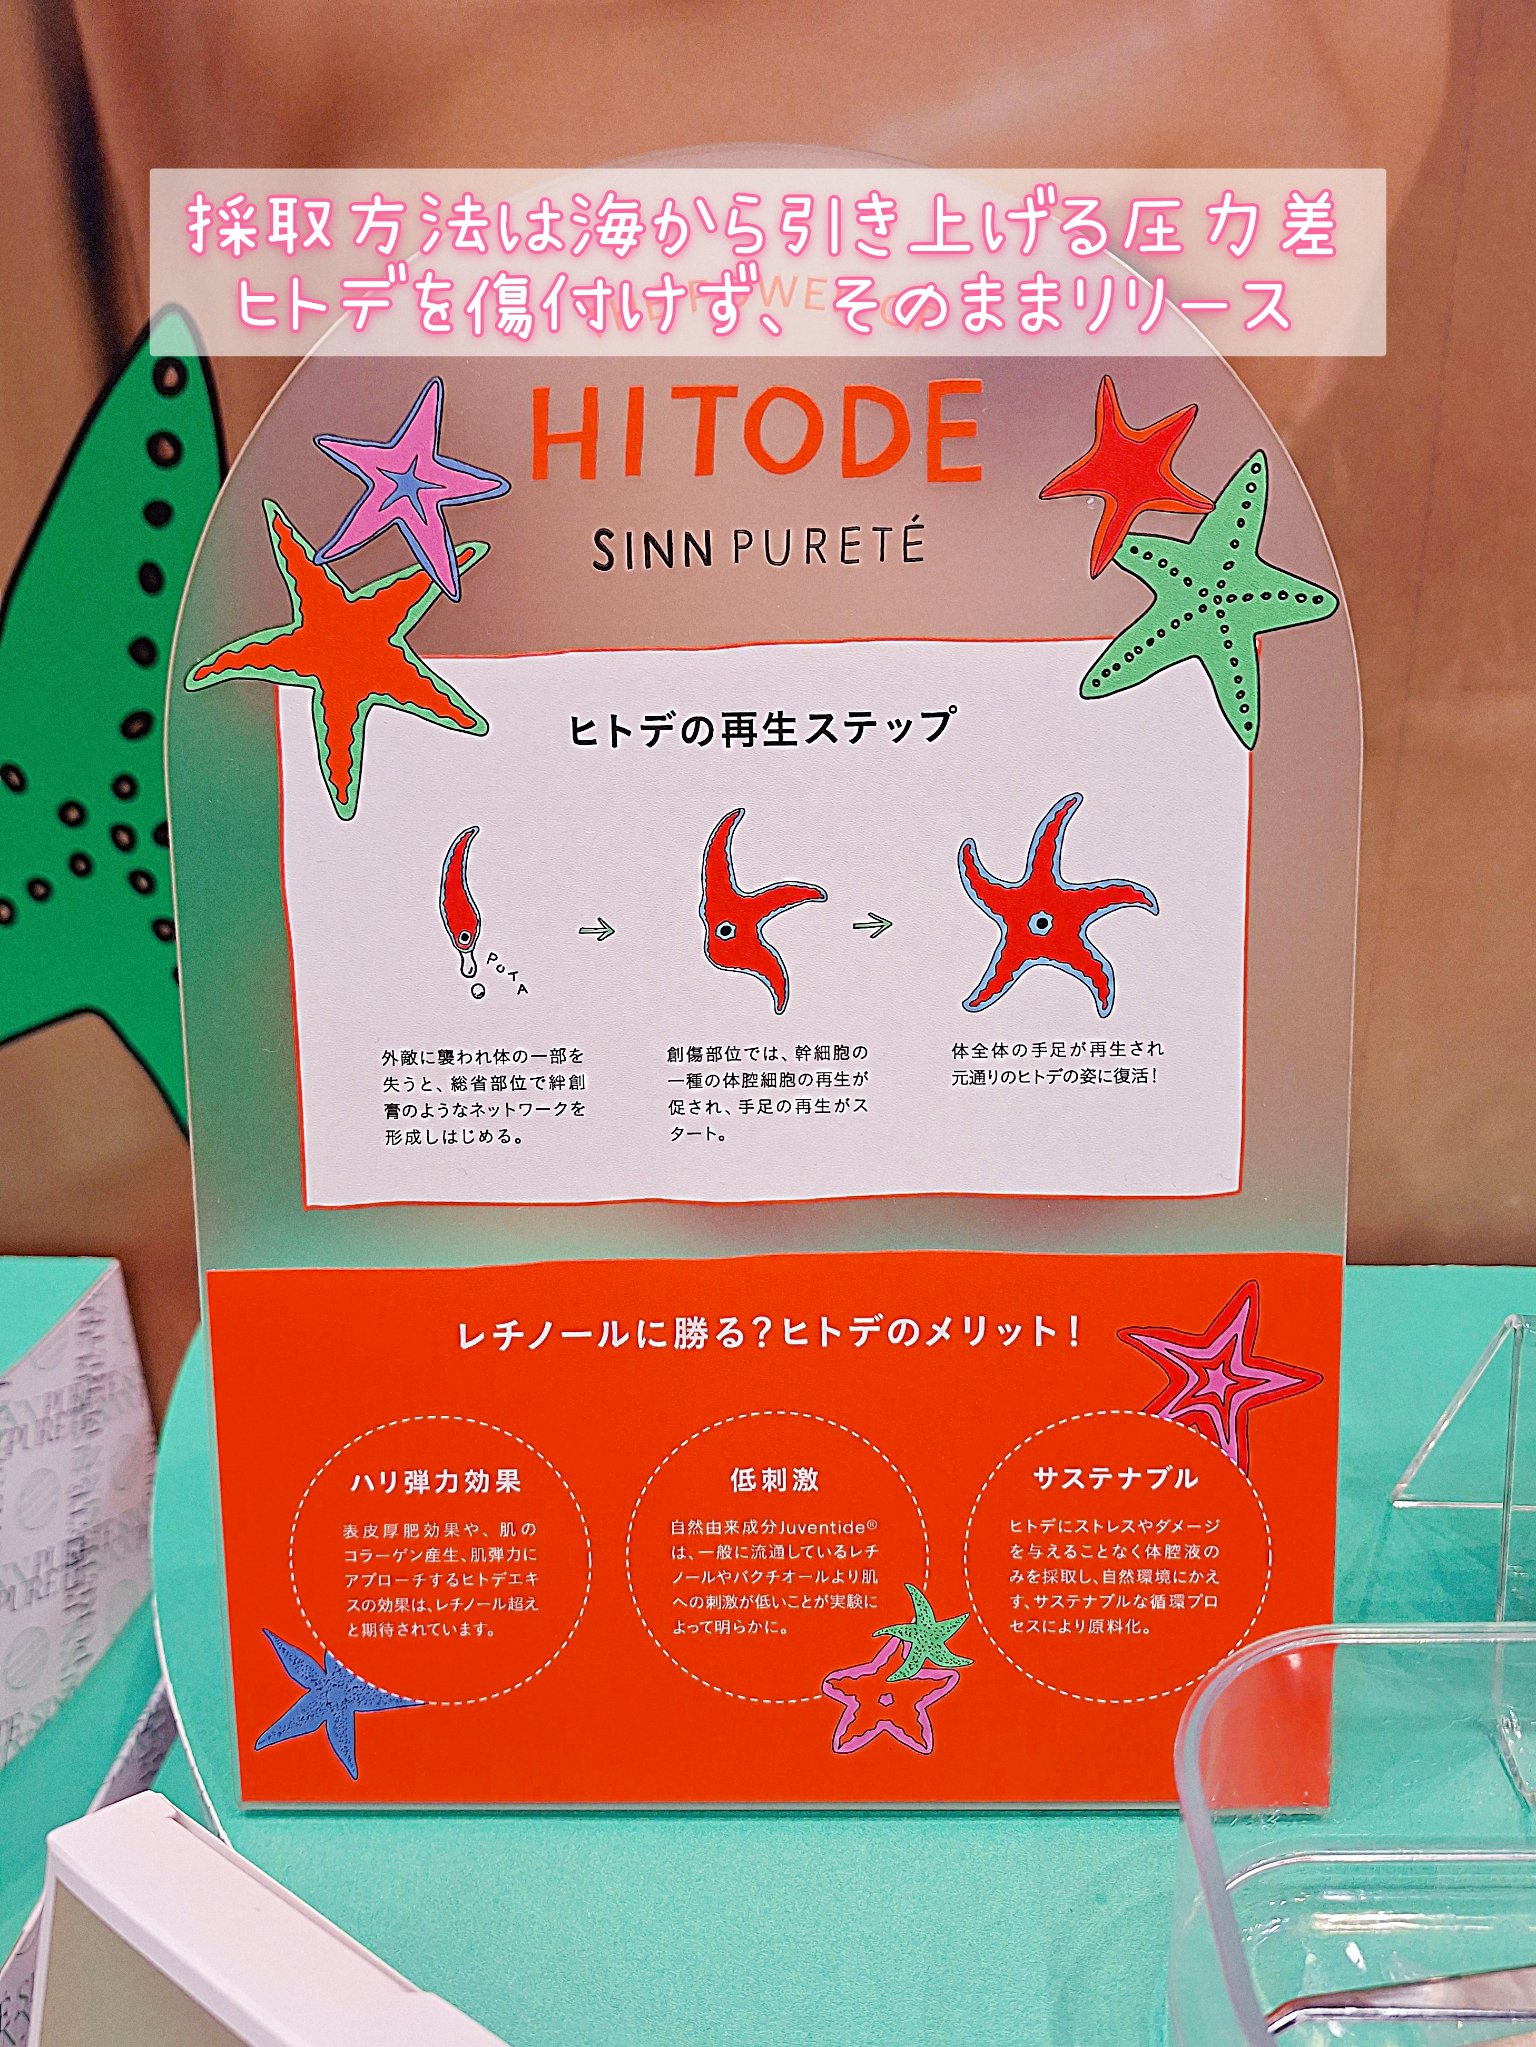 採取方法は海から引き上げる圧力差
ヒトデを傷付けず、そのままリリース
HITODE
SINN PURETÉ
ヒトデの再生ステップ
POTA
外敵に襲われ体の一部を
失うと、総省部位で絆創
膏のようなネットワークを
形成しはじめる。
創傷部位では、幹細胞の
一種の体腔細胞の再生が
促され、手足の再生がス
タート。
体全体の手足が再生され
元通りのヒトデの姿に復活！
レチノールに勝る？ヒトデのメリット！
ハリ弾力効果
表皮厚肥効果や、肌の
コラーゲン産生、肌弾力に
アプローチするヒトデエキ
スの効果は、レチノール超え
と期待されています。
低刺激
自然由来成分Juventide®
は、一般に流通しているレチ
ノールやバクチオールより肌
への刺激が低いことが実験に
よって明らかに。
サステナブル
ヒトデにストレスやダメージ
を与えることなく体腔液の
みを採取し、自然環境にかえ
す、サステナブルな循環プロ
セスにより原料化。